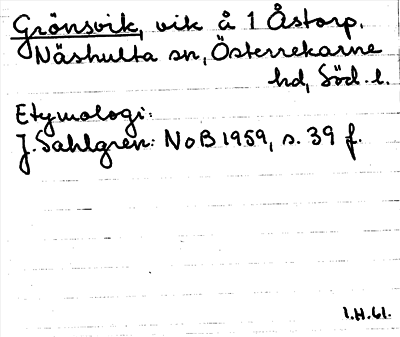 Grönsvik, vik å 1 Åstorp.
Näshulta sn, Österrekarne
hd, Söd. l.
Etymologi:
J. Sahlgren: NoB 1959, s. 39 f.
I.H.61.